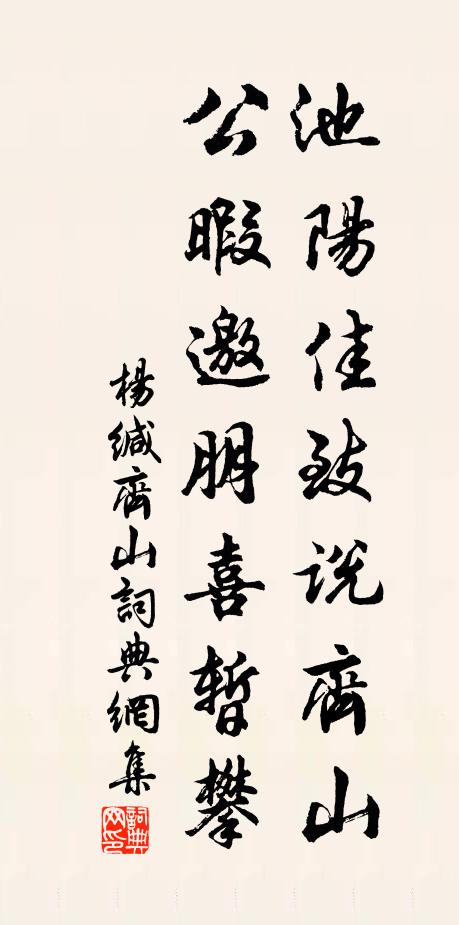 池陽佳致説齊山
公暇邀朋喜暫攀
楊緘齊山詞典網集
詞典網印